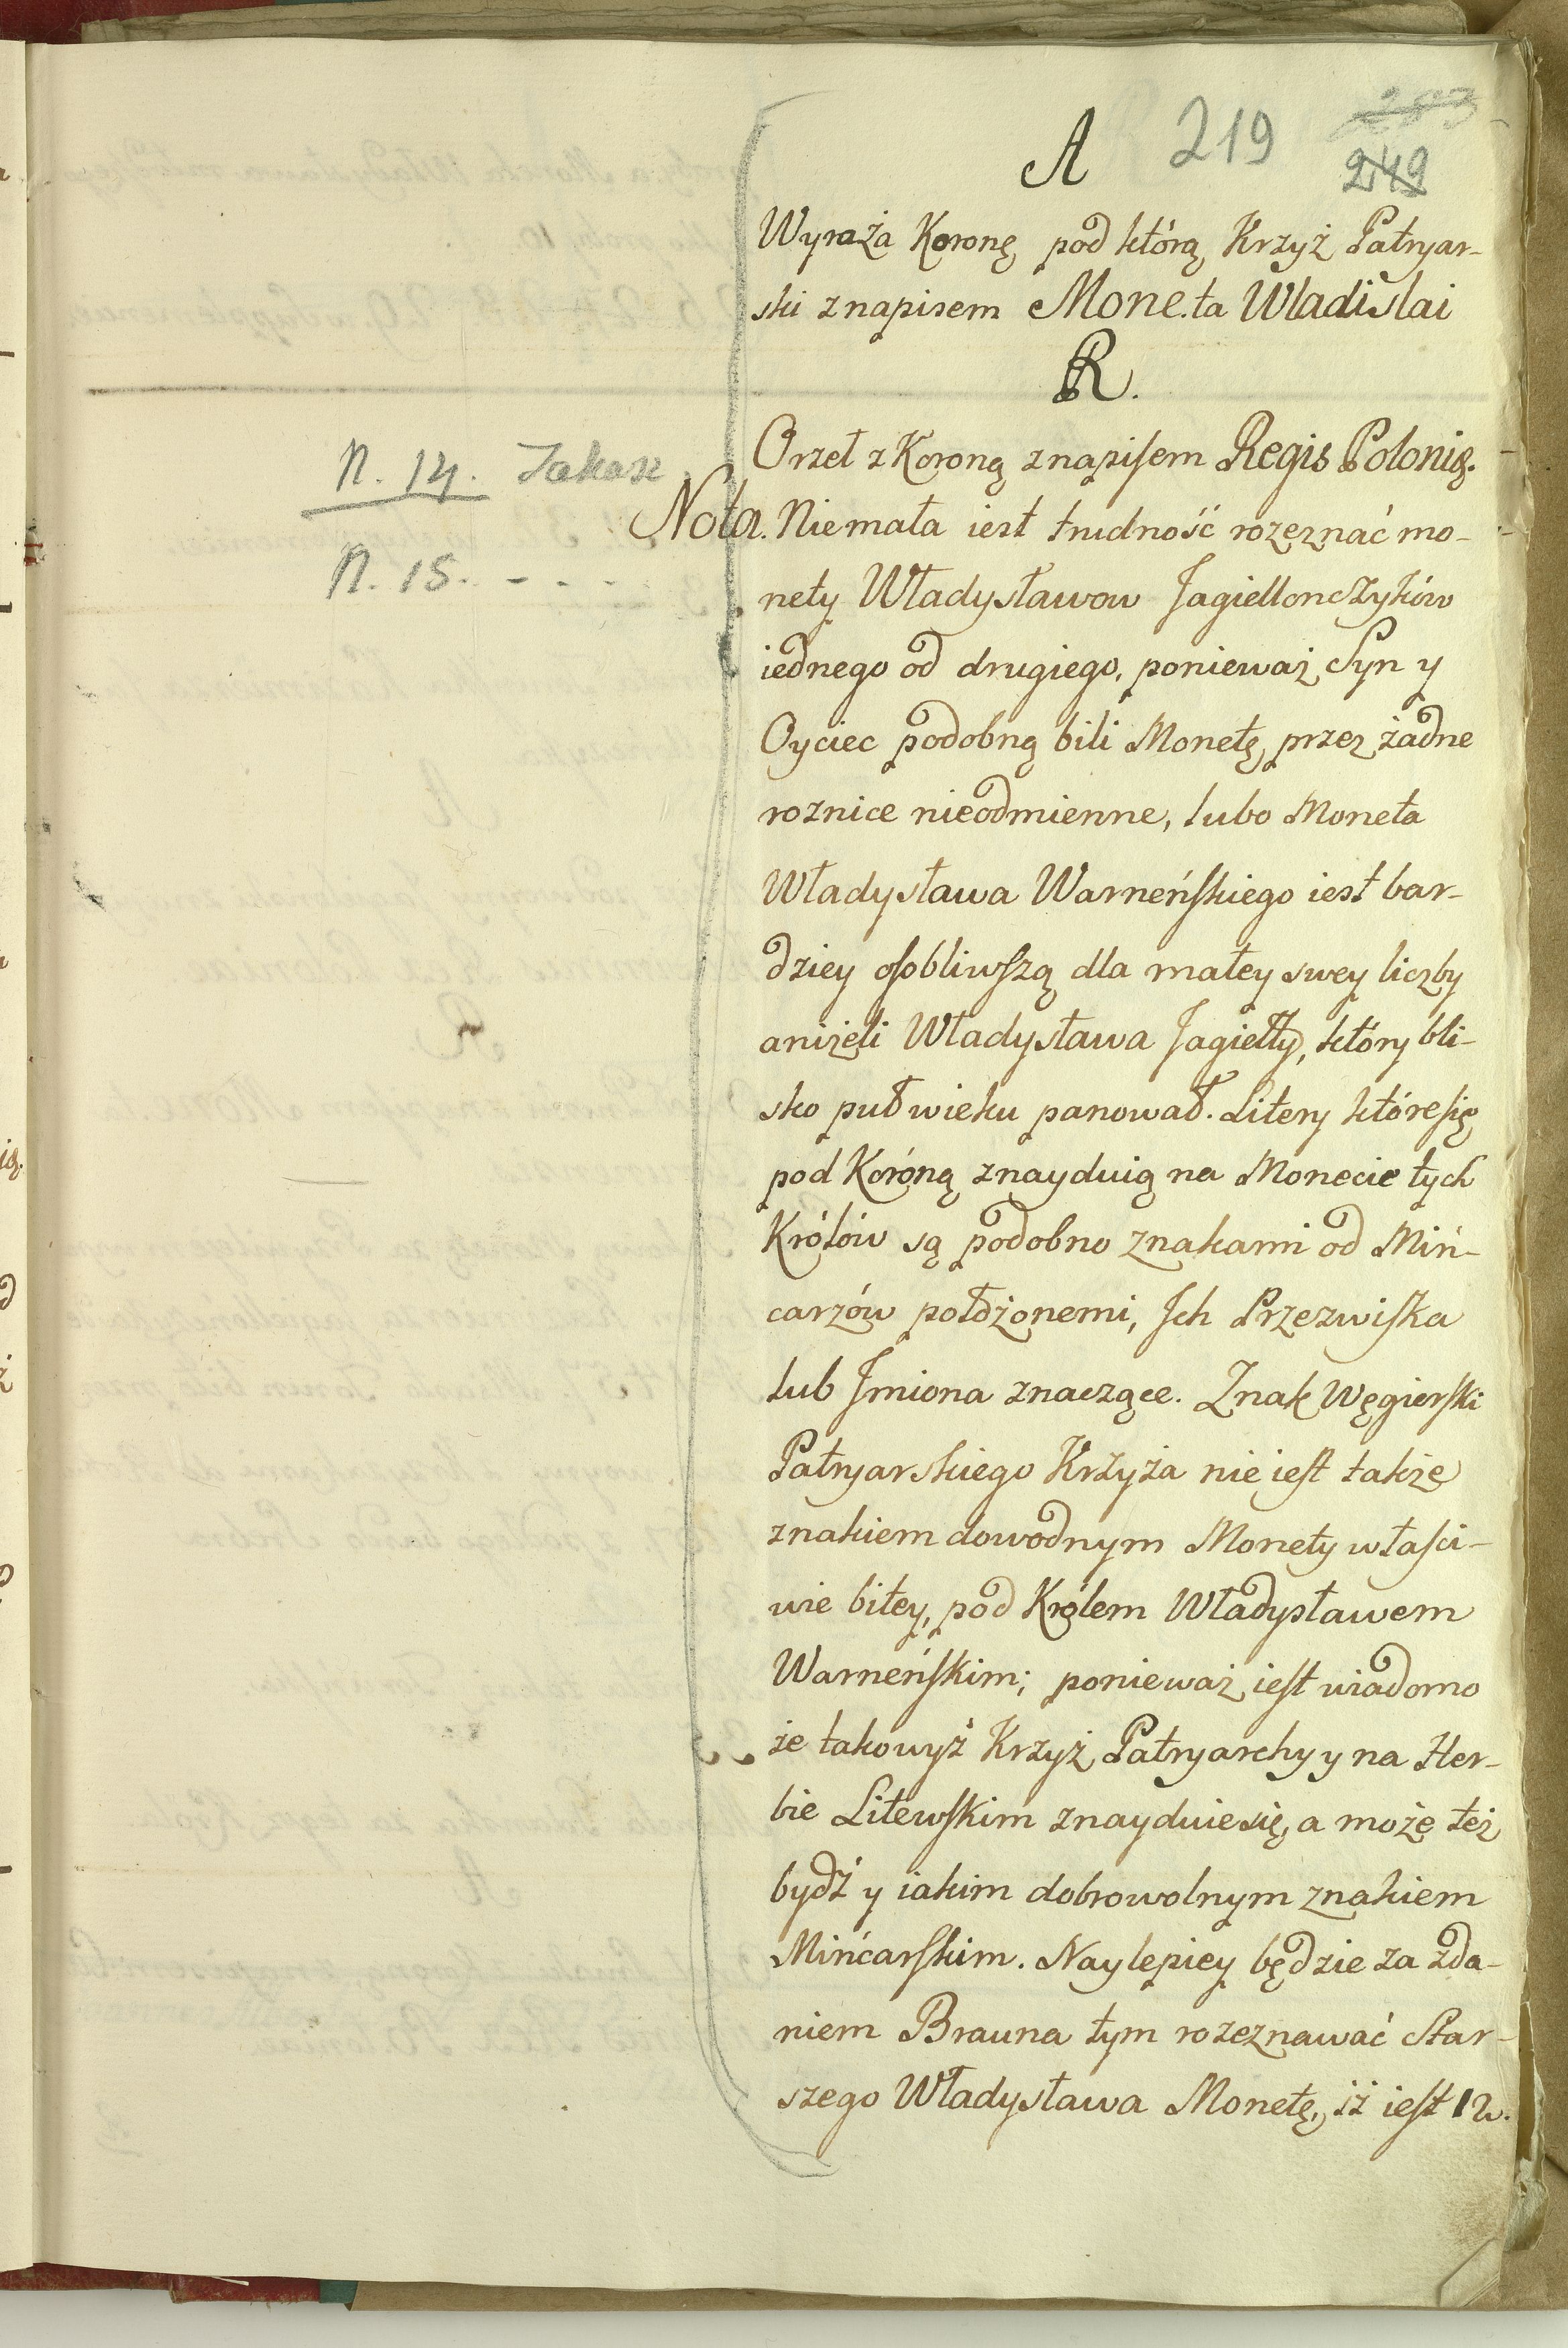 A 219
249
Wyraża Koronę pod którą Krzyż Patryar-
ski z napisem Mone.ta Wladislai
R.
Orzeł z Koroną z napisem Regis Polonię.
N. 14. Jakasz
Nota. Niemała iest trudność rozeznać mo-
N. 15. - - - -
nety Władysławow Jagiellonczyków
iednego od drugiego, ponieważ Syn y
Oyciec podobną bili Monetę, przez żadne
roznice nieodmienne, lubo Moneta
Władysława Warneńskiego iest bar-
dziey osobliwszą dla małey swey liczby
aniżeli Władysława Jagiełły, który bli-
sko puł wieku panował. Litery które się
pod Koróną znayduią na Monecie tych
Królów są podobno znakami od Miń-
carzów położonemi, Ich Przezwiska
lub Imiona znaczące. Znak Węgierski
Patryarskiego Krzyża nie iest także
znakiem dowodnym Monety właści-
wie bitey, pod Królem Władysławem
Warneńskim; ponieważ iest wiadomo
że takowyż Krzyż Patryarchy y na Her-
bie Litewskim znayduie się, a może też
bydź y iakim dobrowolnym znakiem
Mińcarskim. Naylepiey będzie za zda-
niem Brauna tym rozeznawać Star-
szego Władysława Monetę, iż iest 12.